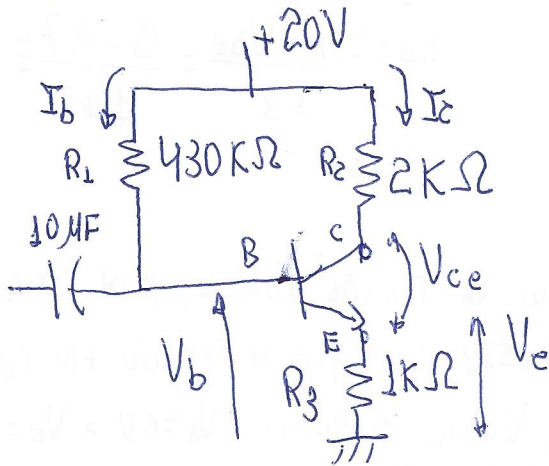 +20V
Ib
Ic
R1 430KΩ
R2 2KΩ
10µF
B
C
Vce
E
Vb
R3 1KΩ
Ve